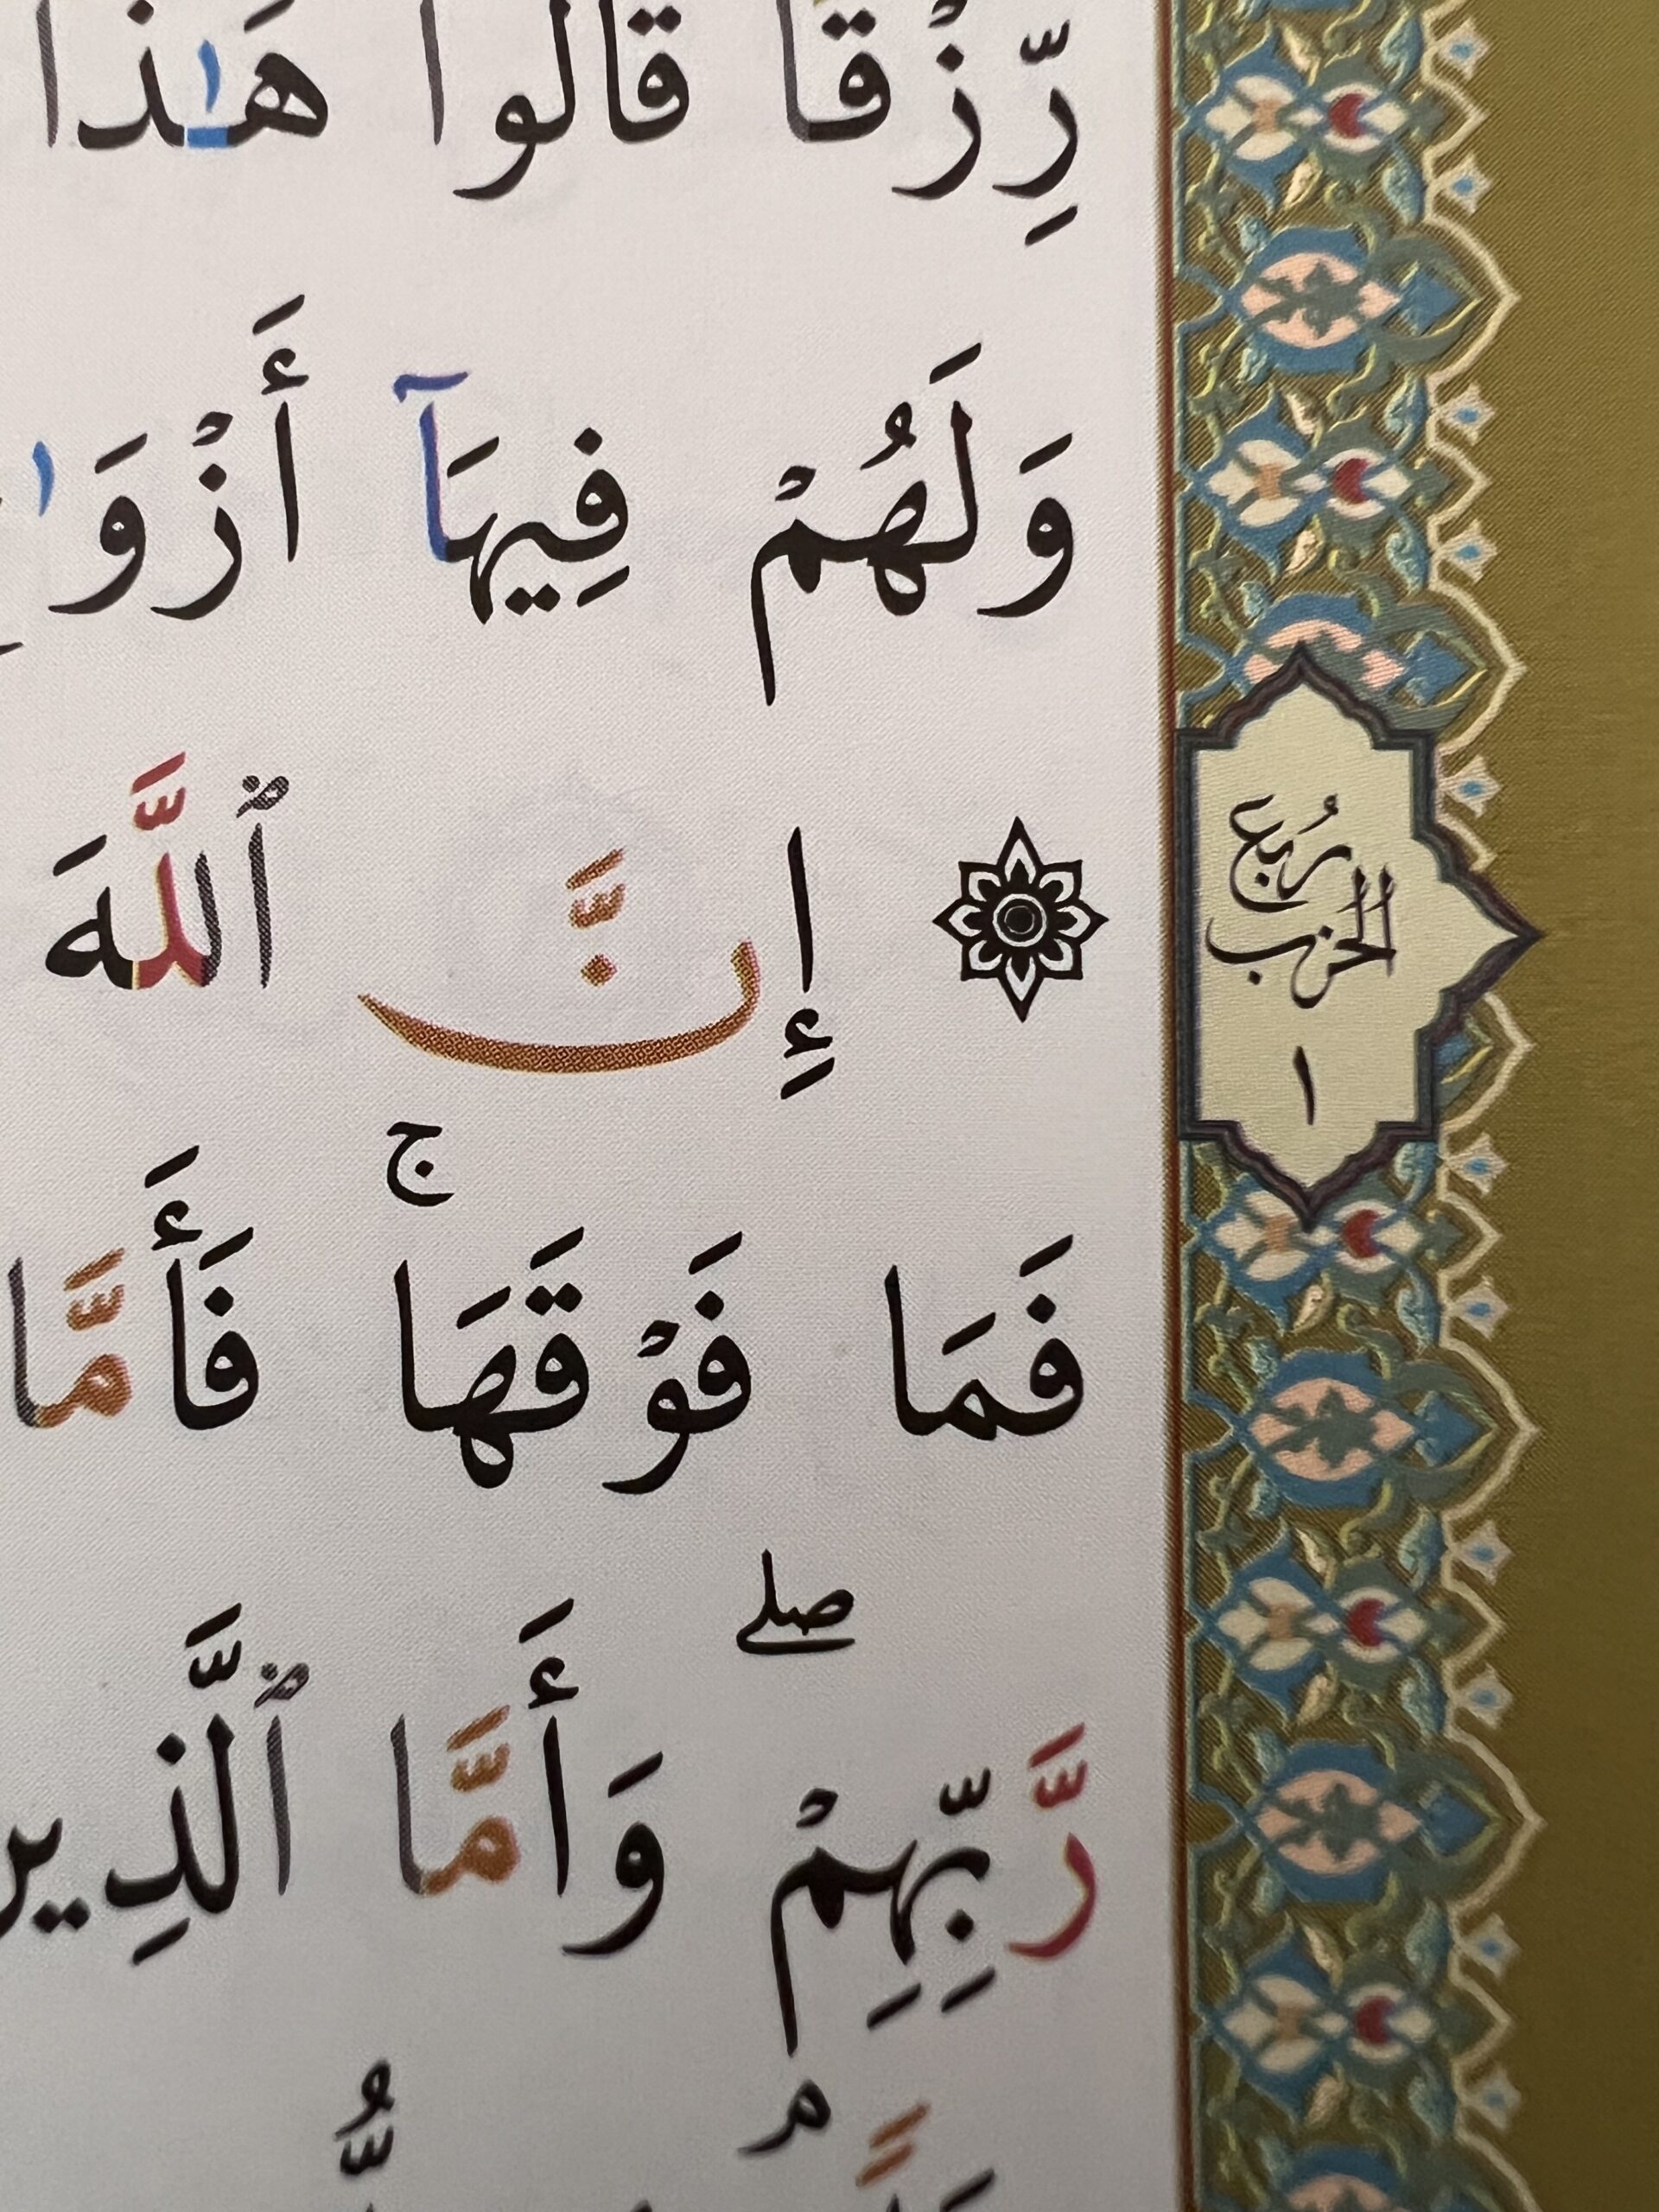 رِّزْقًا قَالُوا هَٰذَا
وَلَهُمْ فِيهَآ أَزْوَٰ
۞ إِنَّ ٱللَّهَ
رُبع
الحزب
١
فَمَا فَوْقَهَا ۚ فَأَمَّا
رَّبِّهِمْ ۖ وَأَمَّا ٱلَّذِين